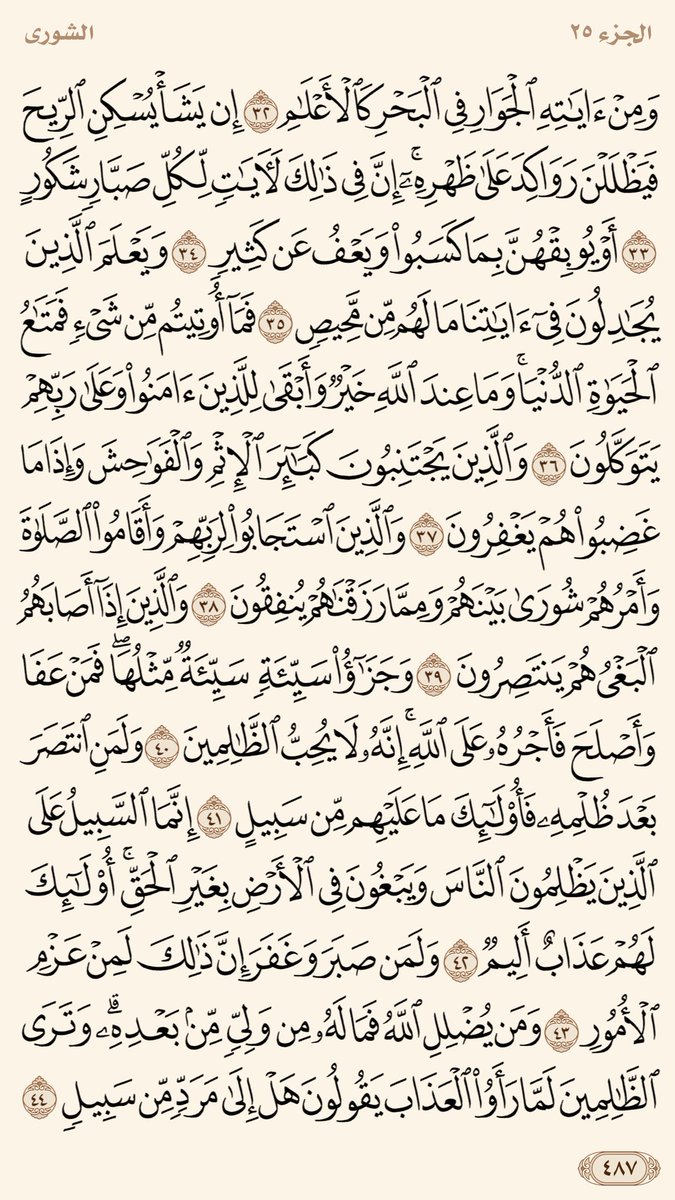 الجزء ٢٥ الشورى
وَمِنْ ءَايَٰتِهِ ٱلْجَوَارِ فِى ٱلْبَحْرِ كَٱلْأَعْلَٰمِ ٣٢ إِن يَشَأْ يُسْكِنِ ٱلرِّيحَ
فَيَظْلَلْنَ رَوَاكِدَ عَلَىٰ ظَهْرِهِۦٓ ۚ إِنَّ فِى ذَٰلِكَ لَءَايَٰتٍ لِّكُلِّ صَبَّارٍ شَكُورٍ
٣٣ أَوْ يُوبِقْهُنَّ بِمَا كَسَبُوا۟ وَيَعْفُ عَن كَثِيرٍ ٣٤ وَيَعْلَمَ ٱلَّذِينَ
يُجَٰدِلُونَ فِىٓ ءَايَٰتِنَا مَا لَهُم مِّن مَّحِيصٍ ٣٥ فَمَآ أُوتِيتُم مِّن شَىْءٍ فَمَتَٰعُ
ٱلْحَيَوٰةِ ٱلدُّنْيَا ۖ وَمَا عِندَ ٱللَّهِ خَيْرٌ وَأَبْقَىٰ لِلَّذِينَ ءَامَنُوا۟ وَعَلَىٰ رَبِّهِمْ
يَتَوَكَّلُونَ ٣٦ وَٱلَّذِينَ يَجْتَنِبُونَ كَبَٰٓئِرَ ٱلْإِثْمِ وَٱلْفَوَٰحِشَ وَإِذَا مَا
غَضِبُوا۟ هُمْ يَغْفِرُونَ ٣٧ وَٱلَّذِينَ ٱسْتَجَابُوا۟ لِرَبِّهِمْ وَأَقَامُوا۟ ٱلصَّلَوٰةَ
وَأَمْرُهُمْ شُورَىٰ بَيْنَهُمْ وَمِمَّا رَزَقْنَٰهُمْ يُنفِقُونَ ٣٨ وَٱلَّذِينَ إِذَآ أَصَابَهُمُ
ٱلْبَغْىُ هُمْ يَنتَصِرُونَ ٣٩ وَجَزَٰٓؤُا۟ سَيِّئَةٍ سَيِّئَةٌ مِّثْلُهَا ۖ فَمَنْ عَفَا
وَأَصْلَحَ فَأَجْرُهُۥ عَلَى ٱللَّهِ ۚ إِنَّهُۥ لَا يُحِبُّ ٱلظَّٰلِمِينَ ٤٠ وَلَمَنِ ٱنتَصَرَ
بَعْدَ ظُلْمِهِۦ فَأُو۟لَٰٓئِكَ مَا عَلَيْهِم مِّن سَبِيلٍ ٤١ إِنَّمَا ٱلسَّبِيلُ عَلَى
ٱلَّذِينَ يَظْلِمُونَ ٱلنَّاسَ وَيَبْغُونَ فِى ٱلْأَرْضِ بِغَيْرِ ٱلْحَقِّ ۚ أُو۟لَٰٓئِكَ
لَهُمْ عَذَابٌ أَلِيمٌ ٤٢ وَلَمَن صَبَرَ وَغَفَرَ إِنَّ ذَٰلِكَ لَمِنْ عَزْمِ
ٱلْأُمُورِ ٤٣ وَمَن يُضْلِلِ ٱللَّهُ فَمَا لَهُۥ مِن وَلِىٍّ مِّنۢ بَعْدِهِۦ ۗ وَتَرَى
ٱلظَّٰلِمِينَ لَمَّا رَأَوُا۟ ٱلْعَذَابَ يَقُولُونَ هَلْ إِلَىٰ مَرَدٍّ مِّن سَبِيلٍ ٤٤
٤٨٧